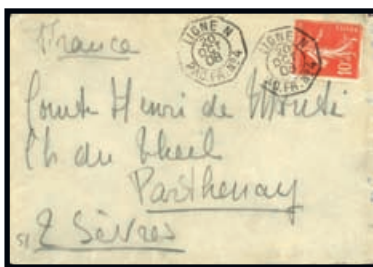 France
LIGNE N
PAQ. FR. Nº4
LIGNE N
PAQ. FR. Nº4
10c
Comte Henri de Monti
Ch du Theil
Parthenay
2 Sèvres